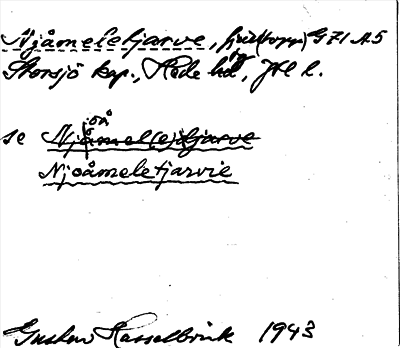 Njåmeletjarve, fjäll(topp) G71 A5
Storsjö kap., Hede hd, Jtl l.
oå
se Njåmel(e)tjarve
Njoåmeletjarvie
Gustav Hasselbrink 1943